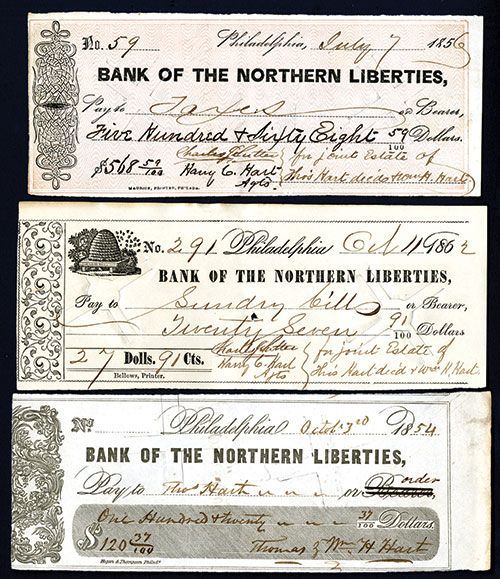 No. 59 Philadelphia, July 7 1856
BANK OF THE NORTHERN LIBERTIES,
Pay to Taxes or Bearer,
Five Hundred & Sixty Eight 59/100 Dollars.
$568 59/100 Harry C. Hart for joint Estate of
Agts Thos Hart decd & Wm H. Hart
MAURICE, PRINTER, PHILADA.
No. 291 Philadelphia Oct 11 1862
BANK OF THE NORTHERN LIBERTIES,
Pay to Sundry bills or Bearer,
Twenty Seven 91/100 Dollars
27 Dolls. 91 Cts. Harry C. Hart for joint Estate of
Agts Thos Hart decd & Wm H. Hart.
Bellows, Printer.
No Philadelphia Octbr 3rd 1854
BANK OF THE NORTHERN LIBERTIES,
Pay to Thos Hart or Bearer, order
One Hundred & twenty 37/100 Dollars.
$120 37/100 Thomas & Wm H Hart
Hogan & Thompson Philada.